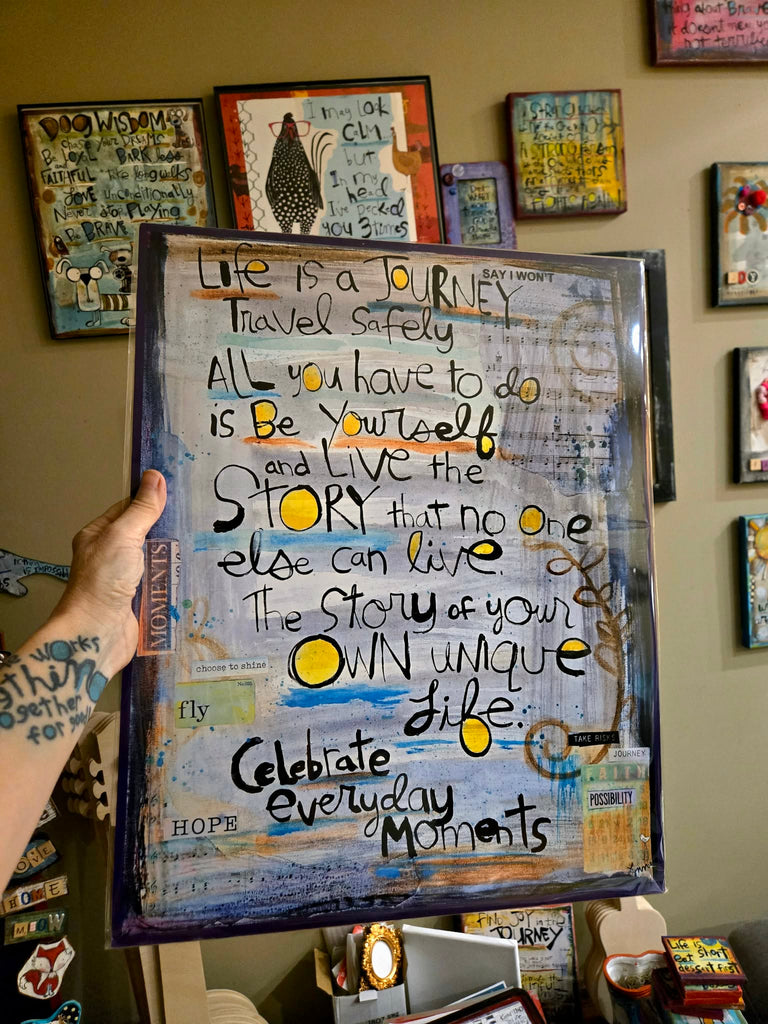 DOG WISDOM
chase your DREAMS
Be LOYAL BARK less
and FAITHFUL Take long walks
LOVE unconditionally
Never Stop Playing
Be BRAVE
I may look
CALM
but
In my
head
I've pecked
you 3 times
A STRONG
A STRONG
thing about Brave
it doesn't mean you
not terrified
Life is a JOURNEY
SAY I WON'T
Travel Safely
ALL you have to do
is Be Yourself
and LIVE the
STORY that no one
else can live.
The Story of your
OWN unique
Life.
Celebrate
everyday
Moments
MOMENTS
choose to shine
fly
HOPE
TAKE RISKS
JOURNEY
FAITH
POSSIBILITY
works
together
for
HOME
MEOW
FIND JOY in the
JOURNEY
Life is
short
eat
dessert first